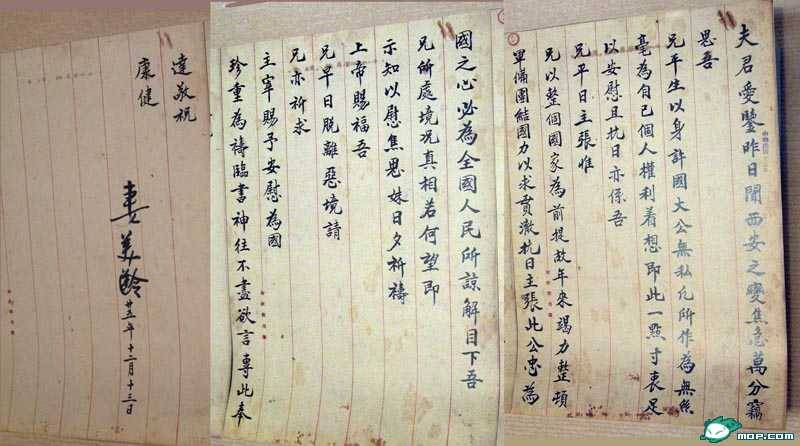 夫君愛鑒昨日聞西安之變焦急萬分竊
思吾
兄平生以身許國大公無私凡所作為無絲
毫為自己個人權利着想即此一點寸衷足
以安慰且抗日亦係吾
兄平日主張惟
兄以整個國家為前提故年來竭力整頓
軍備團結國力以求貫澈抗日主張此公忠為
國之心必為全國人民所諒解目下吾
兄所處境況真相若何望即
示知以慰焦思妹日夕祈禱
上帝賜福吾
兄早日脫離惡境請
兄亦祈求
主宰賜予安慰為國
珍重為禱臨書神往不盡欲言專此奉
達敬祝
康健
美齡
廿五年十二月十三日
mop.com